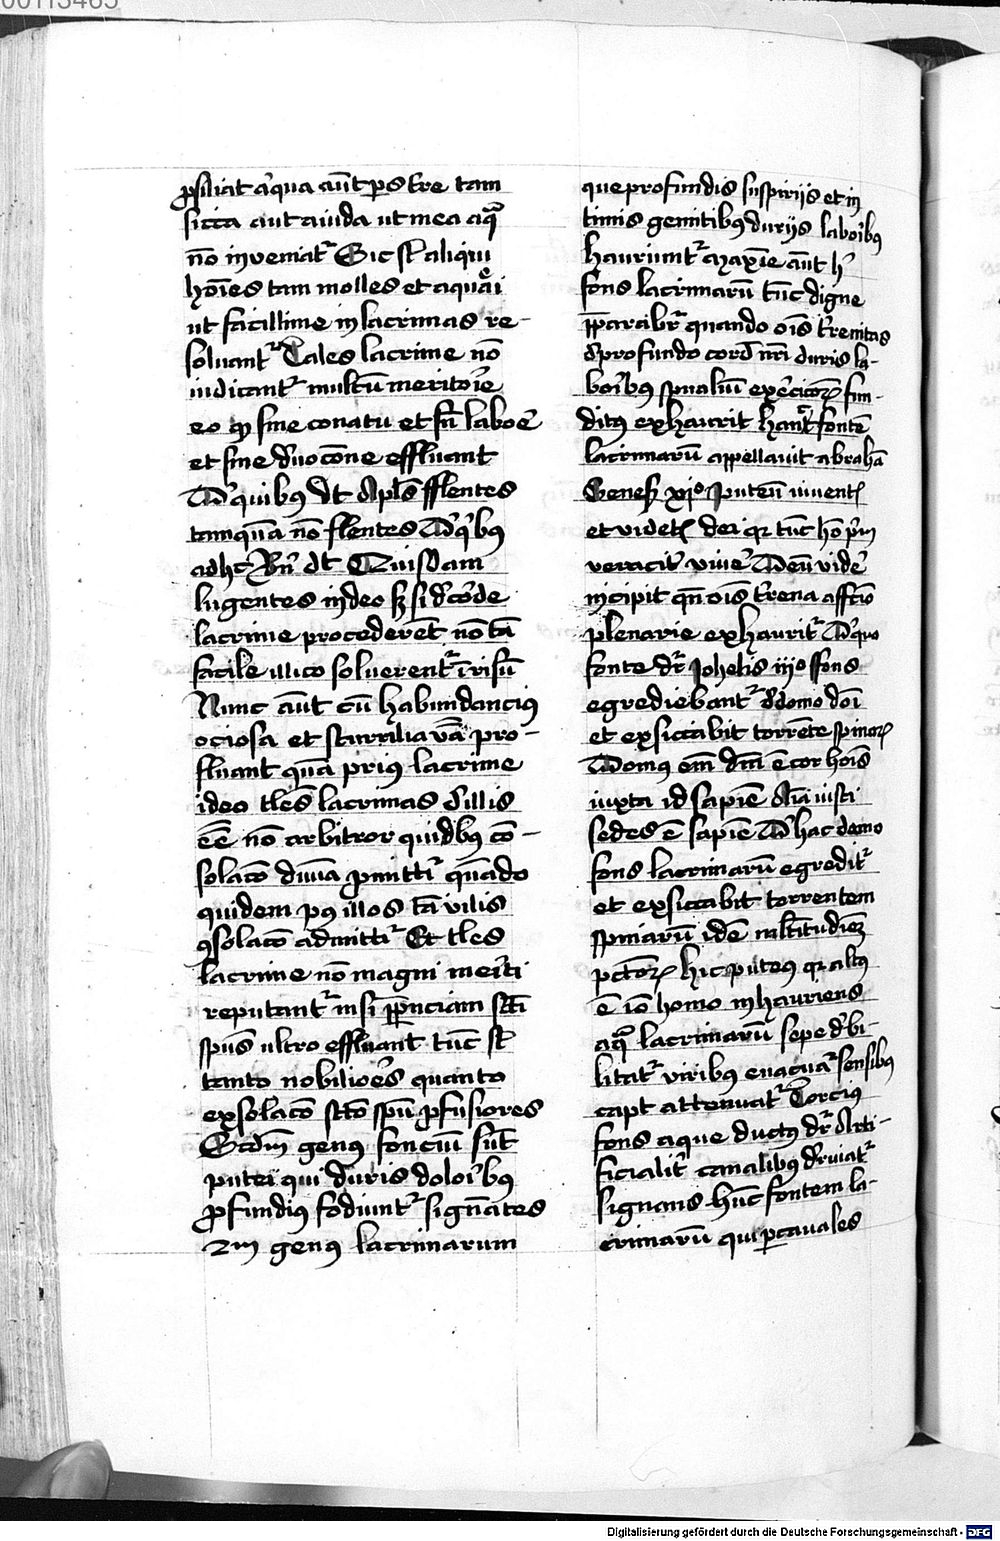 00113465
ꝓsiliat aqua aūt ꝑs tre tam
sicca aut auida ut in ea aqᷓ
nō inveniatᷣ Sic sᷠt aliqui
hōies tam molles et aquāi
ut facillime in lacrimas re-
soluantᷣ Tales lacrime nō
iudicantᷣ multū meritoīe
eo ꝙ sine conatu et sñ laboē
et sine deuocōne effluant
De quibꝰ dt Apl̄s fflentes
tamquā nō flentes De qͥbꝰ
adhc̄ Bn̄ dt Quidam
lugentes in deo sꝫ si de corde
lacrime procederēt nō tā
facile illico soluerentᷣ ī risū
Nunc aūt cū habundancius
ociosa et scurrilia v̄ba pro-
fluant quā prius lacrime
ideo tl̄es lacrimas d̓ illis
eē nō arbitror quidbꝰ cō-
solacō diuīa ꝓmittiᷣ quādo
quidem pꝰ illos tā vilis
ꝯsolacō admittiᷣ Et tl̄es
lacrime nō magni meīti
reputantᷣ nisi ꝑ p̄nciam sc̄ti
spūs ultro effluant tūc sᷠt
tanto nobilioēs quanto
ex solacō sc̄to spū ꝓfusiores
Scdm̄ genus foncium sūt
putei qui duris doloībꝰ
ꝓfundius fodiuntᷣ signātes
2m genus lacrimarum
que profundis suspirijs et in
timis gemitibꝰ durijs laboībꝰ
hauriuntᷣ Maxīe aūt hᷣ
fons lacrimarū tūc digne
p̄parabᷣ quando oīs trenitas
de profundo cord̄ nr̄i duris la-
boībꝰ spūaliū exercicioꝝ fun-
ditꝰ exhaurit hanc fontē
lacrimarū appellauit abrahā
Genesꝭ xxjo puteū viuentꝭ
et videtꝭ dei qꝛ tūc hō pm̄
veracitᷣ viuē Deū vidē
incipit qn̄ oīs trena affc̄io
plenarie exhauritᷣ De quo
fonte drᷣ Johelis iijo ffons
egrediebantᷣ de domo dōi
et exsiccabit torrēte spinoꝝ
Domus em̄ dm̄ ē cor hoīs
iuxta id sapīe Aīa iusti
sedes ē sapīe De hac domo
fons lacrimarū egreditᷣ
et exsiccabit torrentem
spinarū idē mltitudiēꝫ
pctoꝝ hic puteus qꝛ altus
ē iō homo in hauriens
aqᷓ lacrimarū sepe debi-
litatᷣ viribus euacuatᷣ sensibus
capt attenuatᷣ Torcius
fons aque ductus drᷣ Arti-
ficialitᷣ canalibus deriuatᷣ
signans hūc fontem la-
crimarū qui ꝑ canales
Digitalisierung gefördert durch die Deutsche Forschungsgemeinschaft - DFG